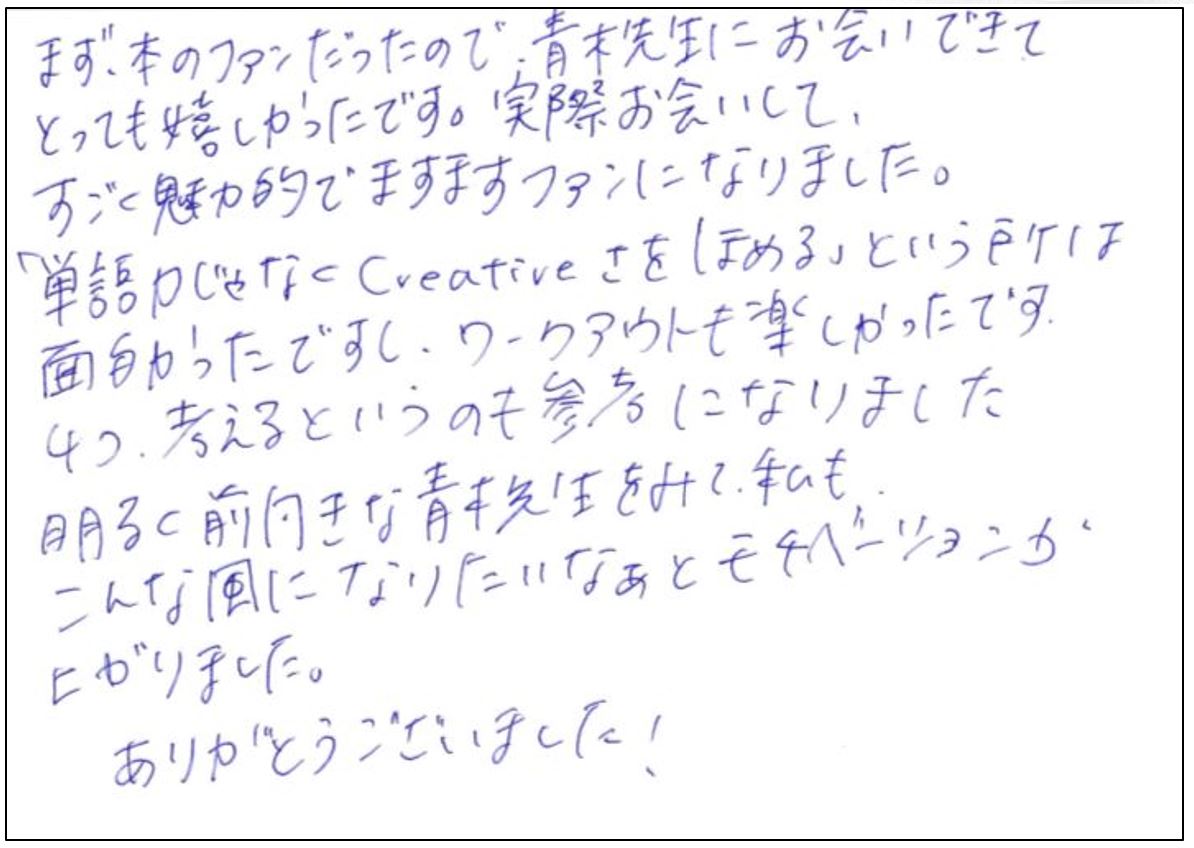 まず、本のファンだったので、青木先生にお会いできて
とっても嬉しかったです。実際お会いして、
すごく魅力的でますますファンになりました。
「単語力じゃなく Creative さをほめる」という所は
面白かったですし、ワークアウトも楽しかったです。
4つ、考えるというのも参考になりました
明るく前向きな青木先生をみて、私も、
こんな風になりたいなぁとモチベーションが
上がりました。
ありがとうございました!